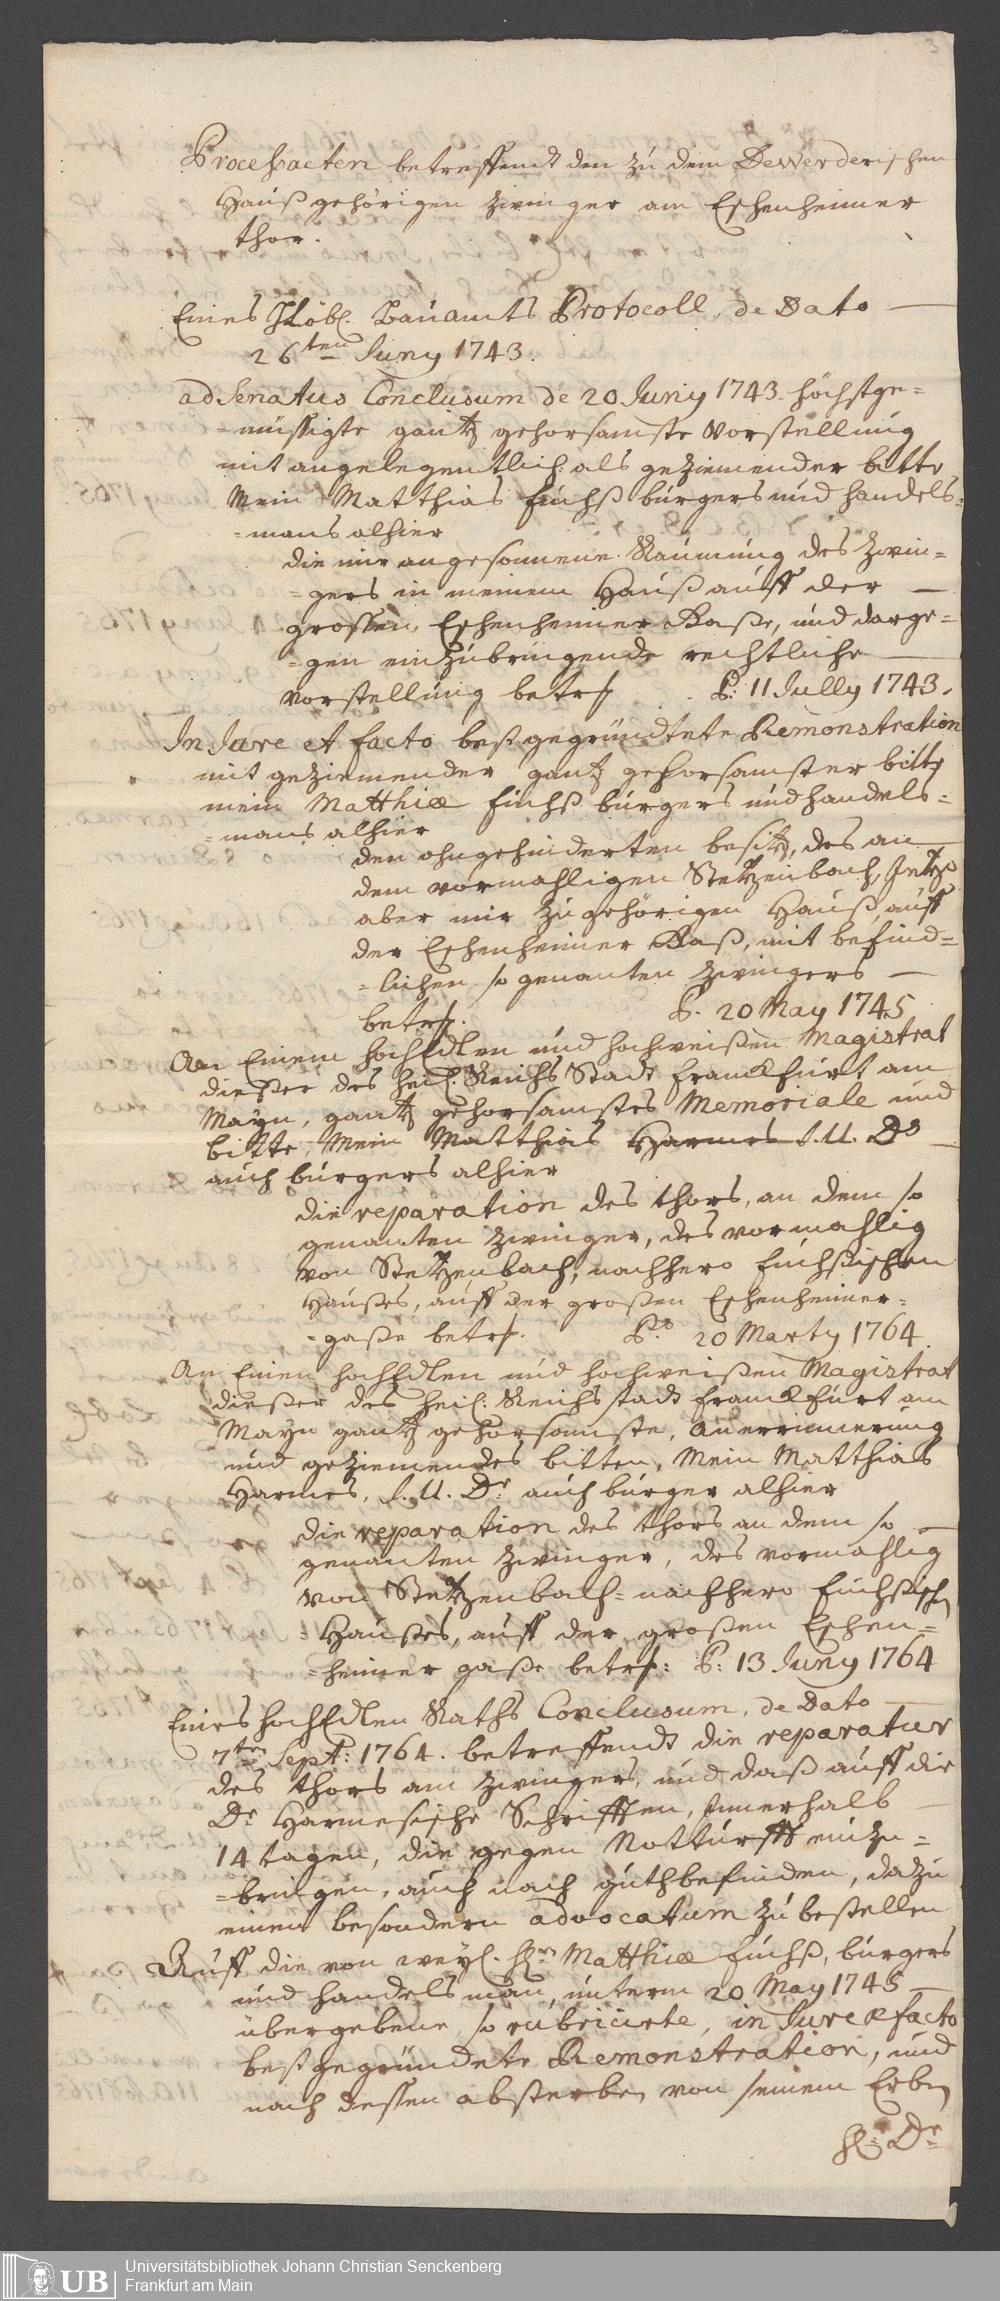 3
Processacten betreffendt den zu dem Dewerderischen
Hauß gehörigen Zwinger am Eschenheimer
thor.
Eines Löbl. Bauamts Protocoll, de Dato
26ten Juny 1743.
ad Senatus Conclusum de 20 Juny 1743. höchstge=
=müssigte gantz gehorsamste Vorstellung
mit angelegentlich als geziemender bitte
Mein Matthias Fuchß burgers und handels=
=mans alhier
die mir angesonnene Räumung des Zwin=
=gers in meinem Hauß auff der
grossen Eschenheimer Gaße, und darge=
=gen einzubringende rechtliche
Vorstellung betrf. P: 11 Jully 1743.
In Jure et facto bestgegründtete Remonstration
mit geziemender gantz gehorsamster bitte
mein Matthiæ Fuchß burgers und handels=
=mans alhier
den ohngehinderten besitz, des an
dem vormahligen Stetzenbach, Jetzo
aber mir zugehörigen Hauß, auff
der Eschenheimer Gaß, mit befind=
=lichen so genanten Zwingers
betrf. P. 20 May 1745
An Einem HochEdlen und hochweißen Magistrat
dießer des Heil. Reichs Stadt Franckfurt am
Mayn, gantz gehorsamstes Memoriale und
bitte, Mein Matthias Harmes J. U. Ds
auch burgers alhier
die reparation des thors, an dem so
genanten Zwinger, des vormahlig
von Stetzenbach, nachhero Fuchßischen
Haußes, auff der großen Eschenheimer=
=gaße betrf. Ps 20 Marty 1764
An Einen HochEdlen und hochweißen Magistrat
dießer des Heil. Reichs stadt Franckfurt am
Mayn gantz gehorsamste, Anerinnerung
und geziemendes bitten, Mein Matthias
Harmes, J. U. Dr auch burger alhier
die reparation des thors an dem so
genanten Zwinger, des vormahlig
von Stetzenbach= nachhero Fuchßischen
=Haußes, auff der großen Eschen=
=heimer gaße betrf: P: 13 Juny 1764
Eines HochEdlen Raths Conclusum, de Dato
7ten Sept: 1764. betreffendt die reparatur
des thors am Zwingers, und daß auff die
Dr Harmesische Schrifften, Innerhalb
14 tagen, die gegen Notturfft einzu=
=bringen, auch nach guthbefinden, dazu
einen besondern advocatum zu bestellen
Auff die von weyl. Hrn Matthiæ Fuchß, burgers
und handelsman, unterm 20 May 1745
übergebene so rubricirte, in Jure & facto
bestgegründete Remonstration, und
nach dessen absterben von seinem Erben
H: Dr
UB
Universitätsbibliothek Johann Christian Senckenberg
Frankfurt am Main